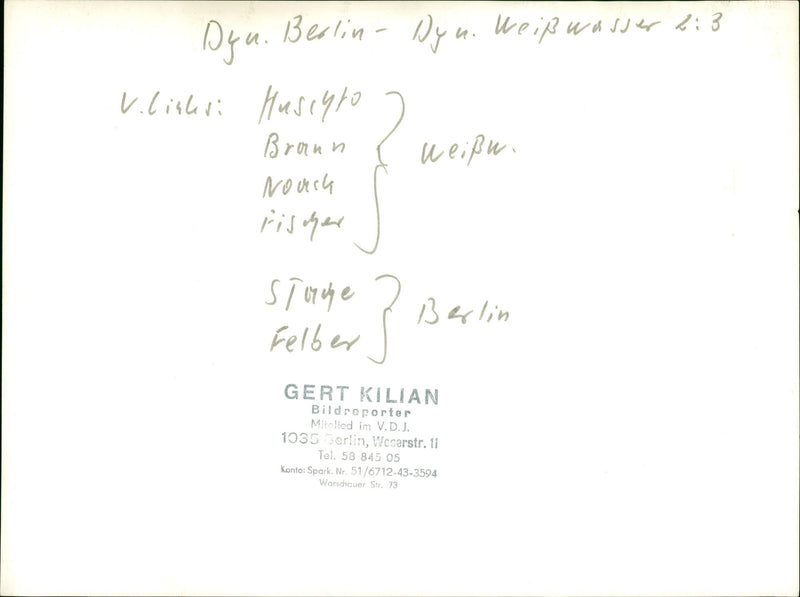 Dyn. Berlin – Dyn. Weißwasser 2:3
V. links: Huschto
Braun
Noack
Fischer
Weißw.
Stache
Felber
Berlin
GERT KILIAN
Bildreporter
Mitglied im V.D.J.
1035 Berlin, Weserstr. 11
Tel. 58 845 05
Konto: Spark. Nr. 51/6712-43-3594
Warschauer Str. 73